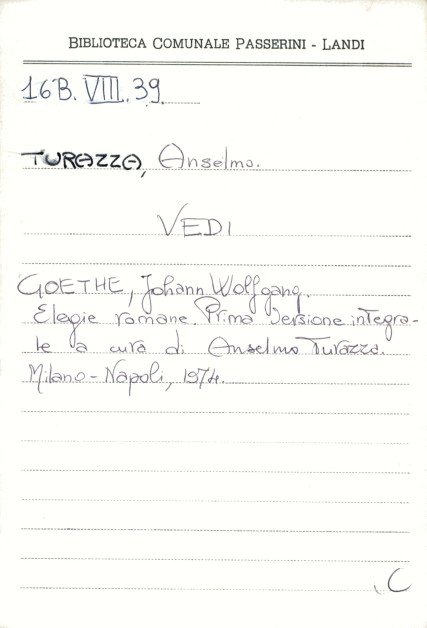 BIBLIOTECA COMUNALE PASSERINI - LANDI
16B. VIII. 39.
TURAZZA, Anselmo.
VEDI
GOETHE, Johann Wolfgang.
Elegie romane. Prima versione integra-
le a cura di Anselmo Turazza.
Milano - Napoli, 1974.
C